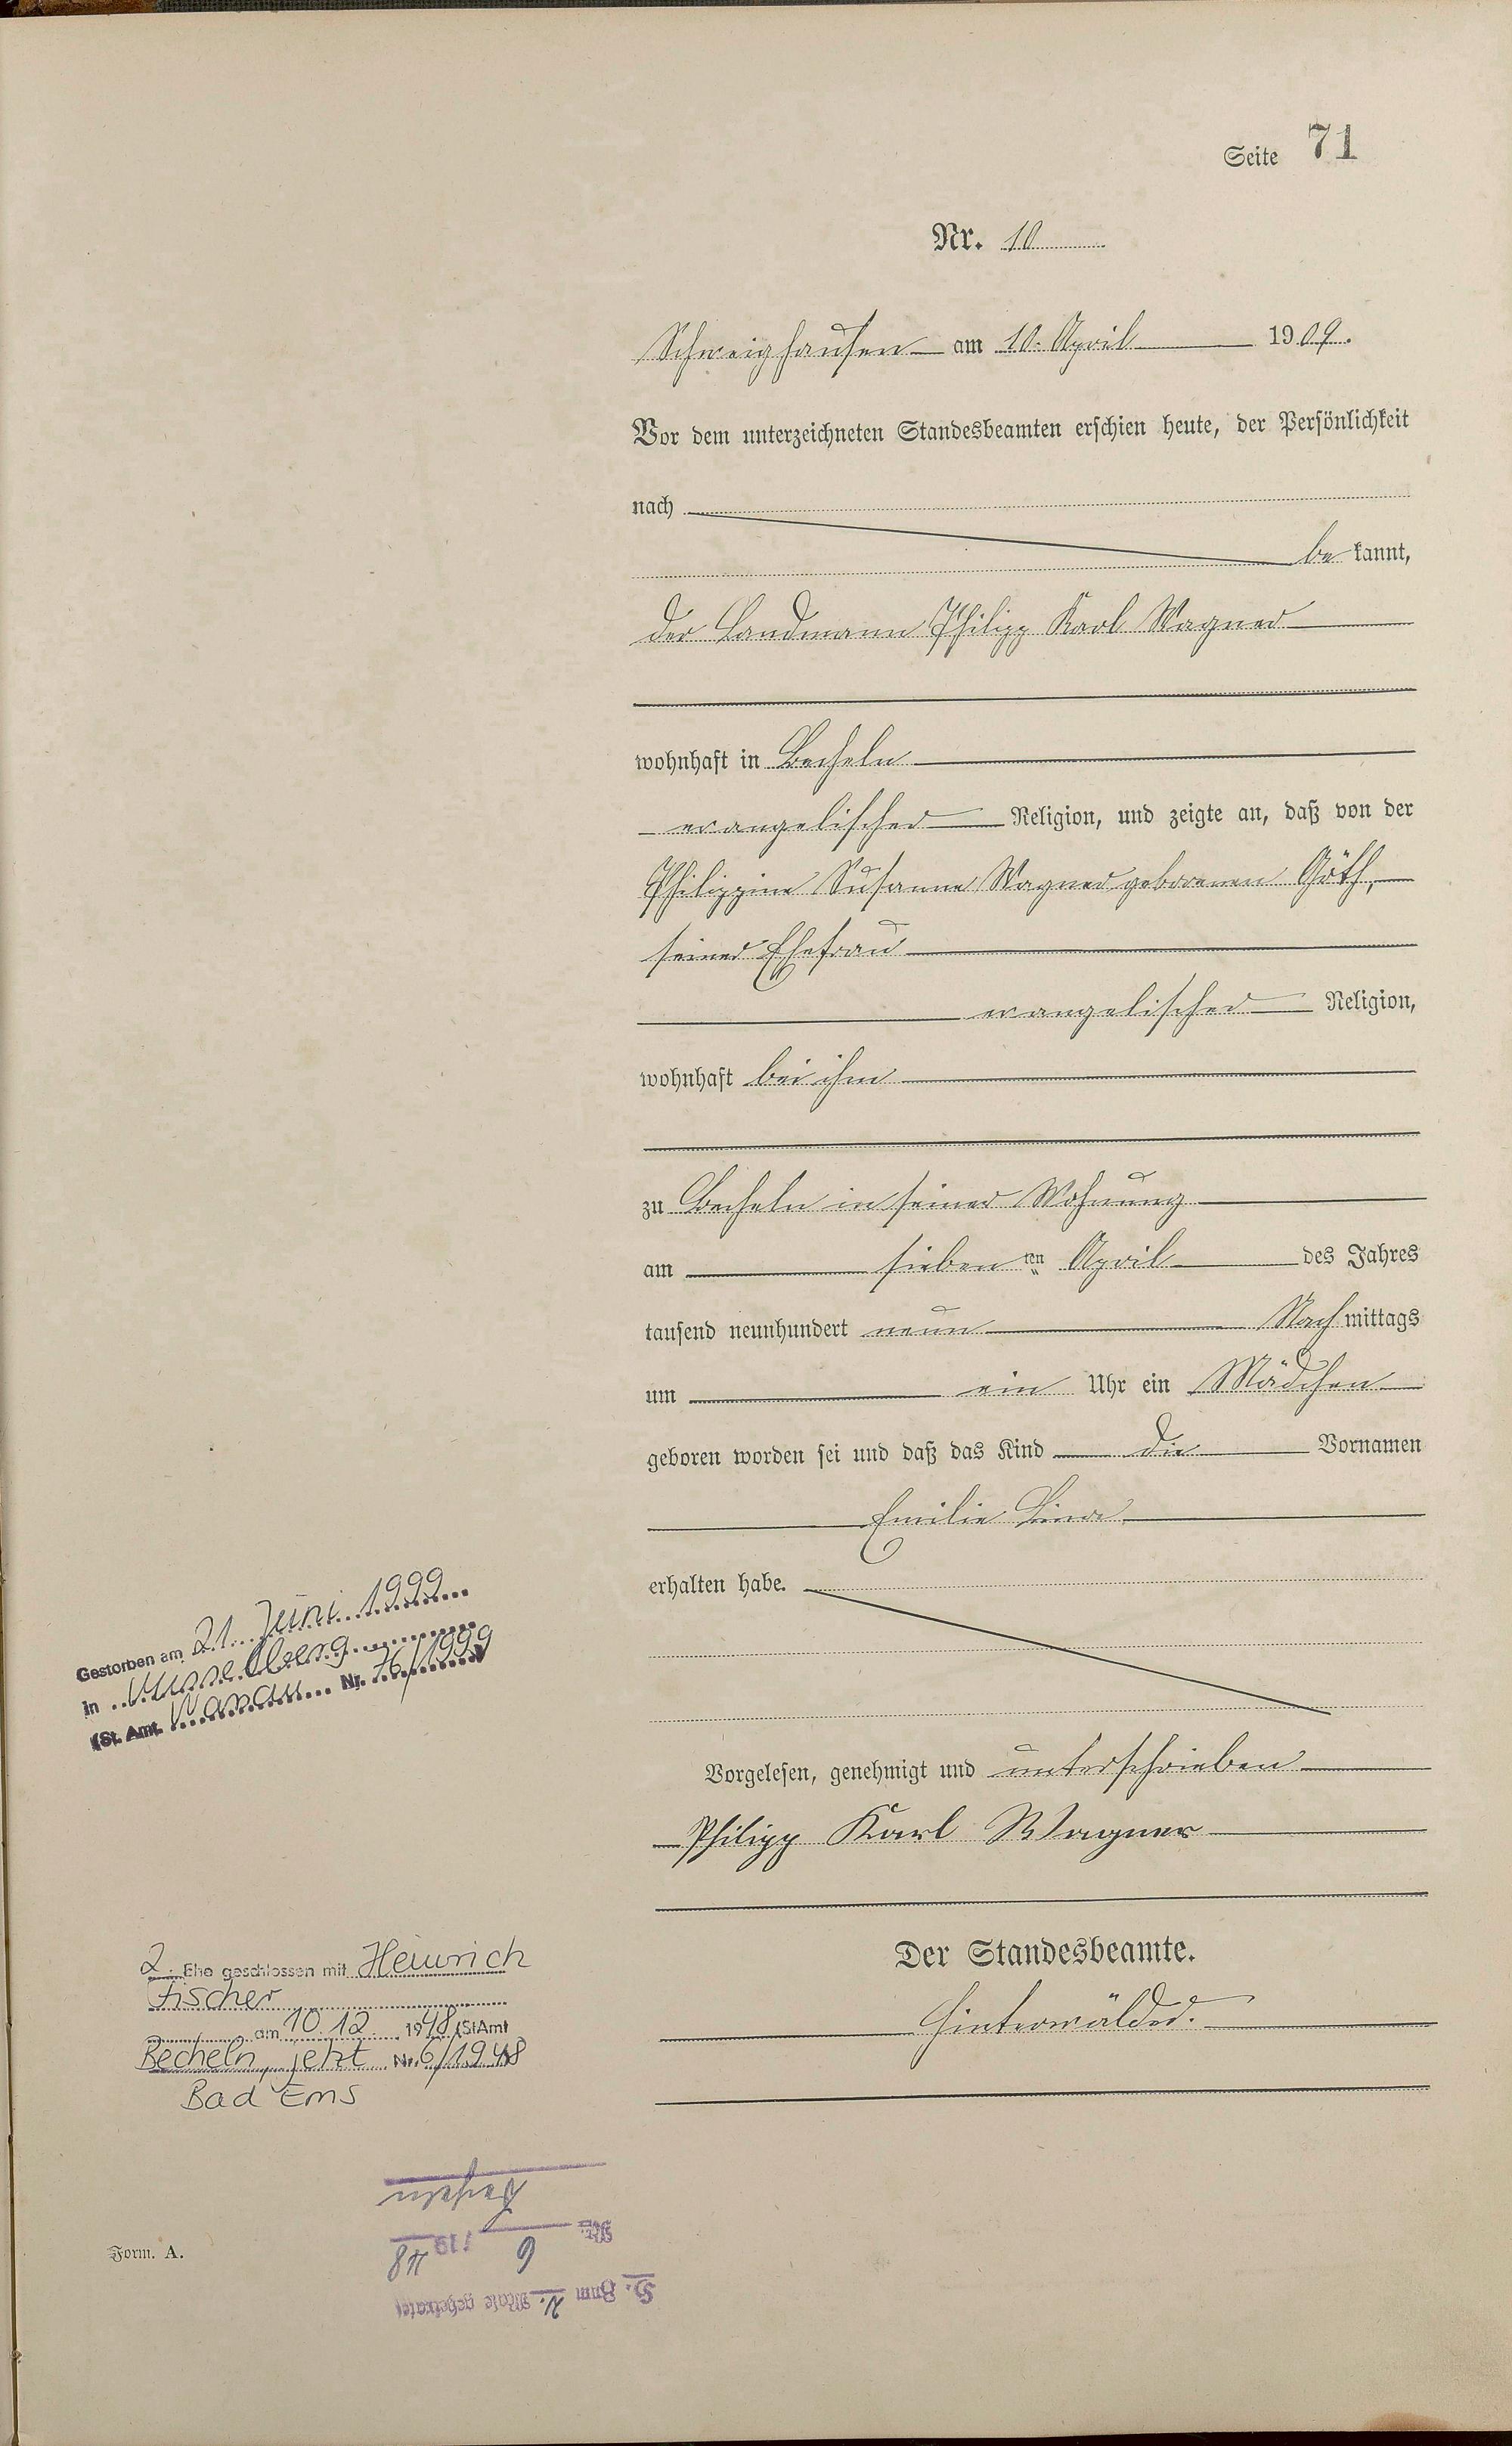 Seite 71
Nr. 10
Schweighausen am 10. April 1909.
Vor dem unterzeichneten Standesbeamten erschien heute, der Persönlichkeit
nach
be kannt,
der Landmann Philipp Karl Wagner
wohnhaft in Becheln
evangelischer Religion, und zeigte an, daß von der
Philippine Susanne Wagner geborenen Göth,
seiner Ehefrau
evangelischer Religion,
wohnhaft bei ihm
zu Becheln in seiner Wohnung
am sieben ten April des Jahres
tausend neunhundert neun Nach mittags
um ein Uhr ein Mädchen
geboren worden sei und daß das Kind die Vornamen
Emilie Lina
erhalten habe.
Vorgelesen, genehmigt und unterschrieben
Philipp Karl Wagner
Der Standesbeamte.
Hinterwälder.
Gestorben am 21. Juni 1999
in
(St. Amt. Nr. 76/1999)
2. Ehe geschlossen mit Heinrich
Fischer
am 10.12. 1948 (StAmt
Becheln, jetzt Nr. 6/1948)
Bad Ems
H. Zum 2. Male geheiratet
Nr. 6 /19 48
Becheln
Form. A.